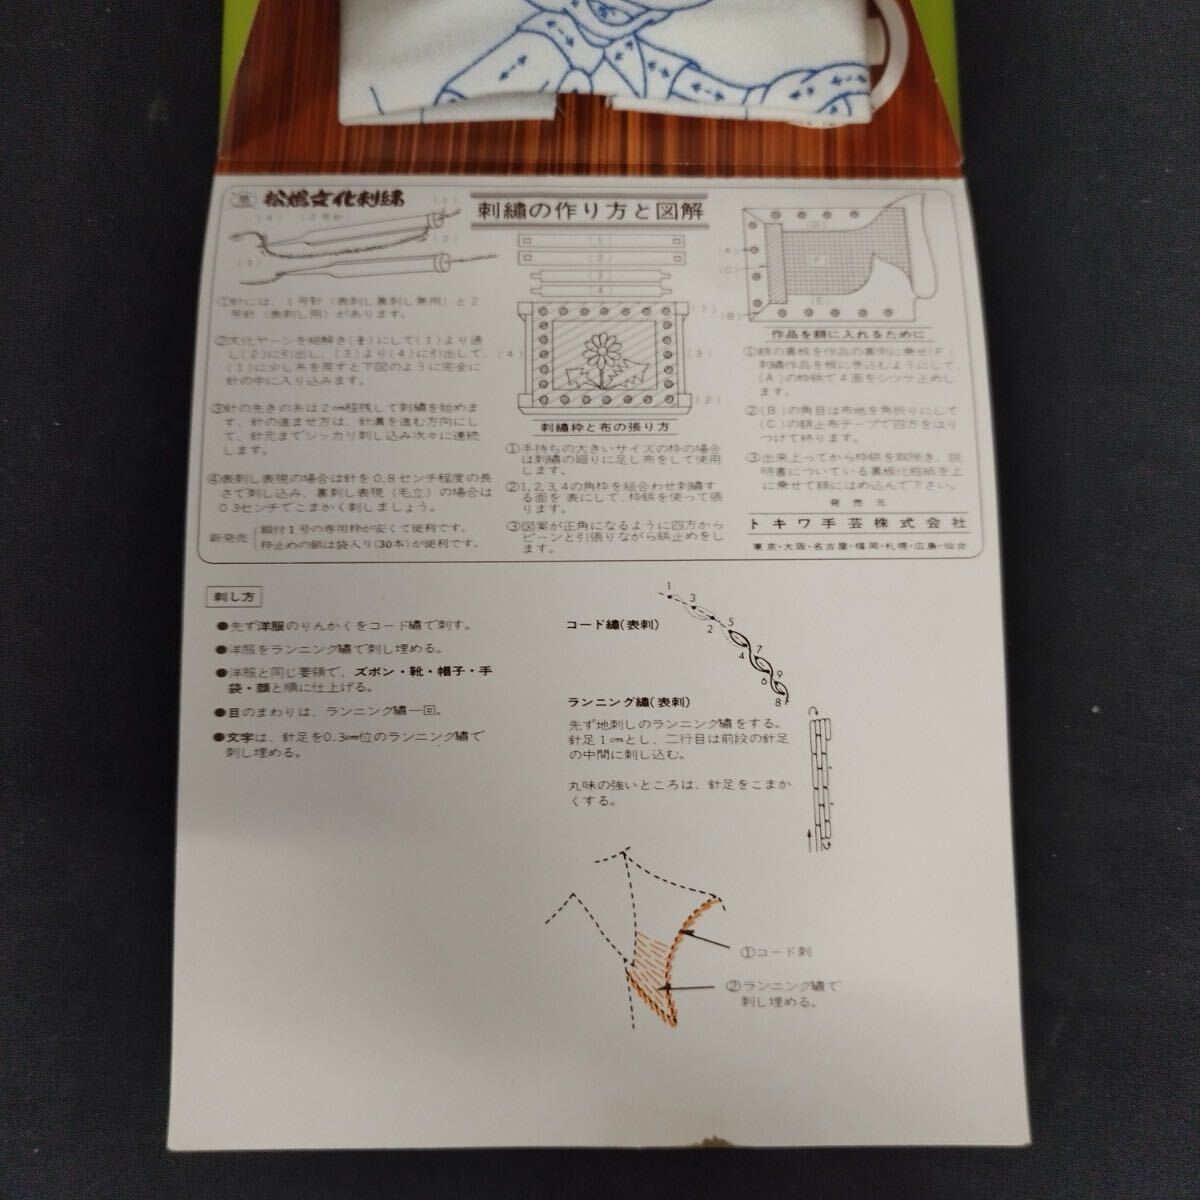 松嶋文化刺繍
刺繍の作り方と図解
①針には、1号針（表刺し裏刺し兼用）と2
号針（表刺し用）があります。
②文化ヤーンを縦解き(半)にして(1)より通
し(2)に引出し、(3)より(4)に引出して、
(1)に少し糸を戻すと下図のように完全に
針の中に入り込みます。
③針の先きの糸は2cm程残して刺繍を始めま
す、針の進ませ方は、針溝を進む方向にし
て、針元までシッカリ刺し込み次々に連続
します。
④表刺し表現の場合は針を0.8センチ程度の長
さて刺し込み、裏刺し表現（毛立）の場合は
0.3センチでこまかく刺しましょう。
新発売
額付1号の専用枠が安くて便利です。
枠止めの鋲は袋入り(30本)が便利です。
(1)
(2)
(3)
(4)
(1)
(2)
(3)
(4)
(1)
(4)
(3)
(2)
刺繍枠と布の張り方
①手持ちの大きいサイズの枠の場合
は刺繍の廻りに足し布をして使用
します。
②1,2,3,4の角枠を組合わせ刺繍す
る面を表にして、枠鋲を使って張
ります。
③図案が正角になるように四方から
ピーンと引張りながら鋲止めをし
ます。
(D)
(A)
(C)
(F)
(E)
(B)
作品を額に入れるために
①額の裏板を作品の裏側に乗せ(F)
刺繍作品を板に巻込むようにして、
(A)の枠鋲で4面をシツケ止めし
ます。
②(B)の角目は布地を角折りにして
(C)の額止布テープで四方をはり
つけて終ります。
③出来上ってから枠鋲を取除き、説
明書についている裏板化粧紙を上
に乗せて額にはめ込んで下さい。
発売元
トキワ手芸株式会社
東京・大阪・名古屋・福岡・札幌・広島・仙台
刺し方
●先ず洋服のりんかくをコード繍で刺す。
●洋服をランニング繍で刺し埋める。
●洋服と同じ要領で、ズボン・靴・帽子・手
袋・顔と順に仕上げる。
●目のまわりは、ランニング繍一回。
●文字は、針足を0.3cm位のランニング繍で
刺し埋める。
コード繍(表刺)
1
3
2
5
4
7
6
9
8
ランニング繍(表刺)
先ず地刺しのランニング繍をする。
針足1cmとし、二行目は前段の針足
の中間に刺し込む。
丸味の強いところは、針足をこまか
くする。
①コード刺
②ランニング繍で
刺し埋める。